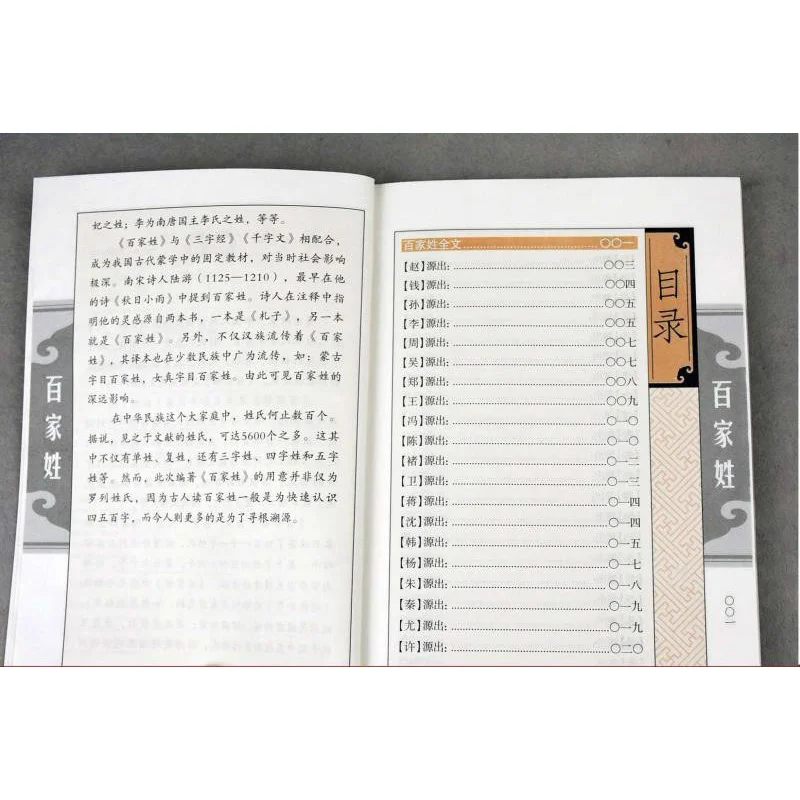 妃之姓；李为南唐国主李氏之姓，等等。
《百家姓》与《三字经》《千字文》相配合，
成为我国古代蒙学中的固定教材，对当时社会影响
极深。南宋诗人陆游（1125—1210），最早在他
的诗《秋日小雨》中提到百家姓。诗人在注释中指
明他的灵感源自两本书，一本是《札子》，另一本
就是《百家姓》。另外，不仅汉族流传着《百家
姓》，其译本也在少数民族中广为流传，如：蒙古
字目百家姓，女真字目百家姓。由此可见百家姓的
深远影响。
在中华民族这个大家庭中，姓氏何止数百个。
据说，见之于文献的姓氏，可达5600个之多。这其
中不仅有单姓、复姓，还有三字姓、四字姓和五字
姓等。然而，此次编著《百家姓》的用意并非仅为
罗列姓氏，因为古人读百家姓一般是为快速认识
四五百字，而今人则更多的是为了寻根溯源。
百家姓
目录
百家姓全文……〇〇一
【赵】源出:……〇〇三
【钱】源出:……〇〇四
【孙】源出:……〇〇五
【李】源出:……〇〇五
【周】源出:……〇〇七
【吴】源出:……〇〇七
【郑】源出:……〇〇八
【王】源出:……〇〇九
【冯】源出:……〇一〇
【陈】源出:……〇一〇
【褚】源出:……〇一二
【卫】源出:……〇一三
【蒋】源出:……〇一四
【沈】源出:……〇一四
【韩】源出:……〇一五
【杨】源出:……〇一七
【朱】源出:……〇一八
【秦】源出:……〇一九
【尤】源出:……〇一九
【许】源出:……〇二〇
百家姓
〇〇一